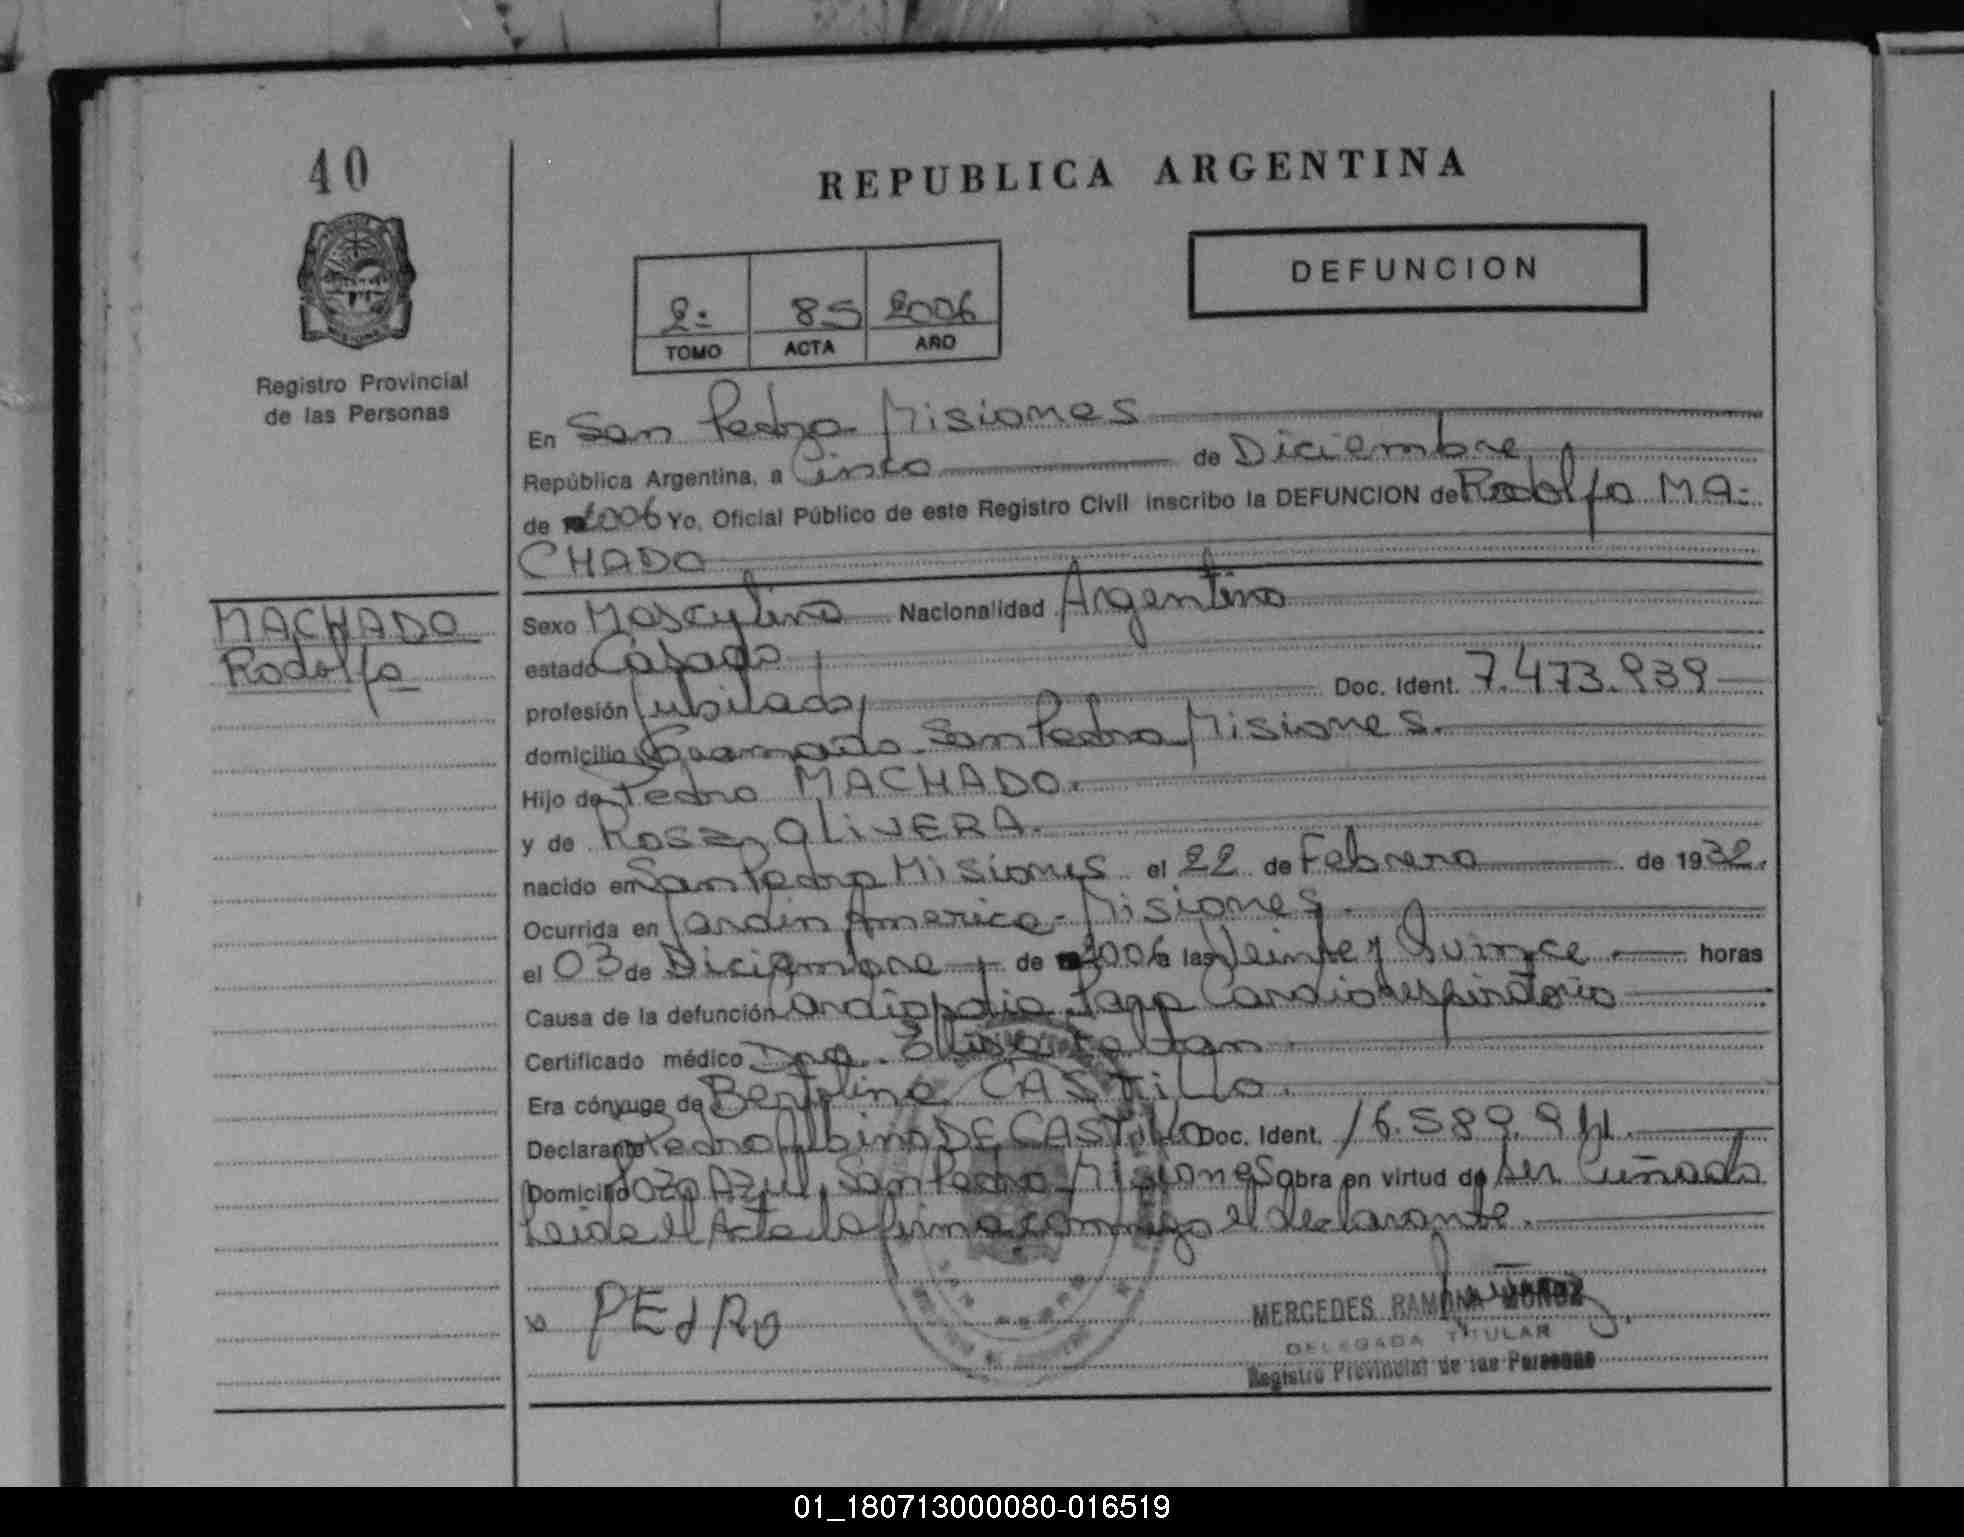 40
REPUBLICA ARGENTINA
DEFUNCION
2: 85 2006
TOMO ACTA AÑO
Registro Provincial
de las Personas
En San Pedro - Misiones
República Argentina, a Cinco de Diciembre
de 2006 Yo, Oficial Público de este Registro Civil inscribo la DEFUNCION de Rodolfo MA-
CHADO
MACHADO
Rodolfo
Sexo Masculino Nacionalidad Argentino
estado Casado
profesión Jubilado Doc. Ident. 7.473.939
domicilio San Pedro Misiones.
Hijo de Pedro MACHADO.
y de Rosa OLIVERA.
nacido en San Pedro Misiones el 22 de Febrero de 1932.
Ocurrida en Jardin America - Misiones.
el 03 de Diciembre de 2006 a las Veinte y Quince horas
Causa de la defunción Cardiopatia. Paro Cardiorespiratorio
Certificado médico Dra.
Era cónyuge de CASTILLO.
Declarante Pedro Albino DE CASTILLO Doc. Ident. 16.589.911.
Domicilio Pozo Azul, San Pedro - Misiones obra en virtud de ser Cuñado
Leida el Acta la firma conmigo el declarante.
x PEdRo
MERCEDES RAMONA MUÑOZ
DELEGADA TITULAR
Registro Provincial de las Personas
01_180713000080-016519